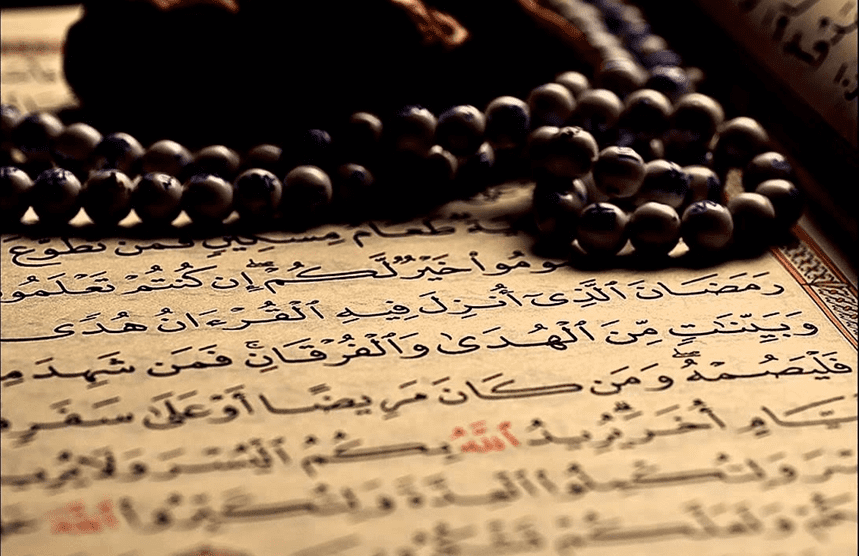 طَعَامُ مِسْكِينٍ فَمَن تَطَوَّعَ
ـومُوا۟ خَيْرٌ لَّكُمْ ۖ إِن كُنتُمْ تَعْلَمُو
رَمَضَانَ ٱلَّذِىٓ أُنزِلَ فِيهِ ٱلْقُرْءَانُ هُدًى
وَبَيِّنَـٰتٍ مِّنَ ٱلْهُدَىٰ وَٱلْفُرْقَانِ ۚ فَمَن شَهِدَ مِـ
فَلْيَصُمْهُ ۖ وَمَن كَانَ مَرِيضًا أَوْ عَلَىٰ سَفَرٍ
يَّامٍ أُخَرَ ۗ يُرِيدُ ٱللَّهُ بِكُمُ ٱلْيُسْرَ وَلَا يُرِيـ
ـسْرَ وَلِتُكْمِلُوا۟ ٱلْعِدَّةَ وَلِتُكَبِّرُوا۟ ٱللَّهَ
ـكُمْ وَلَعَلَّكُمْ